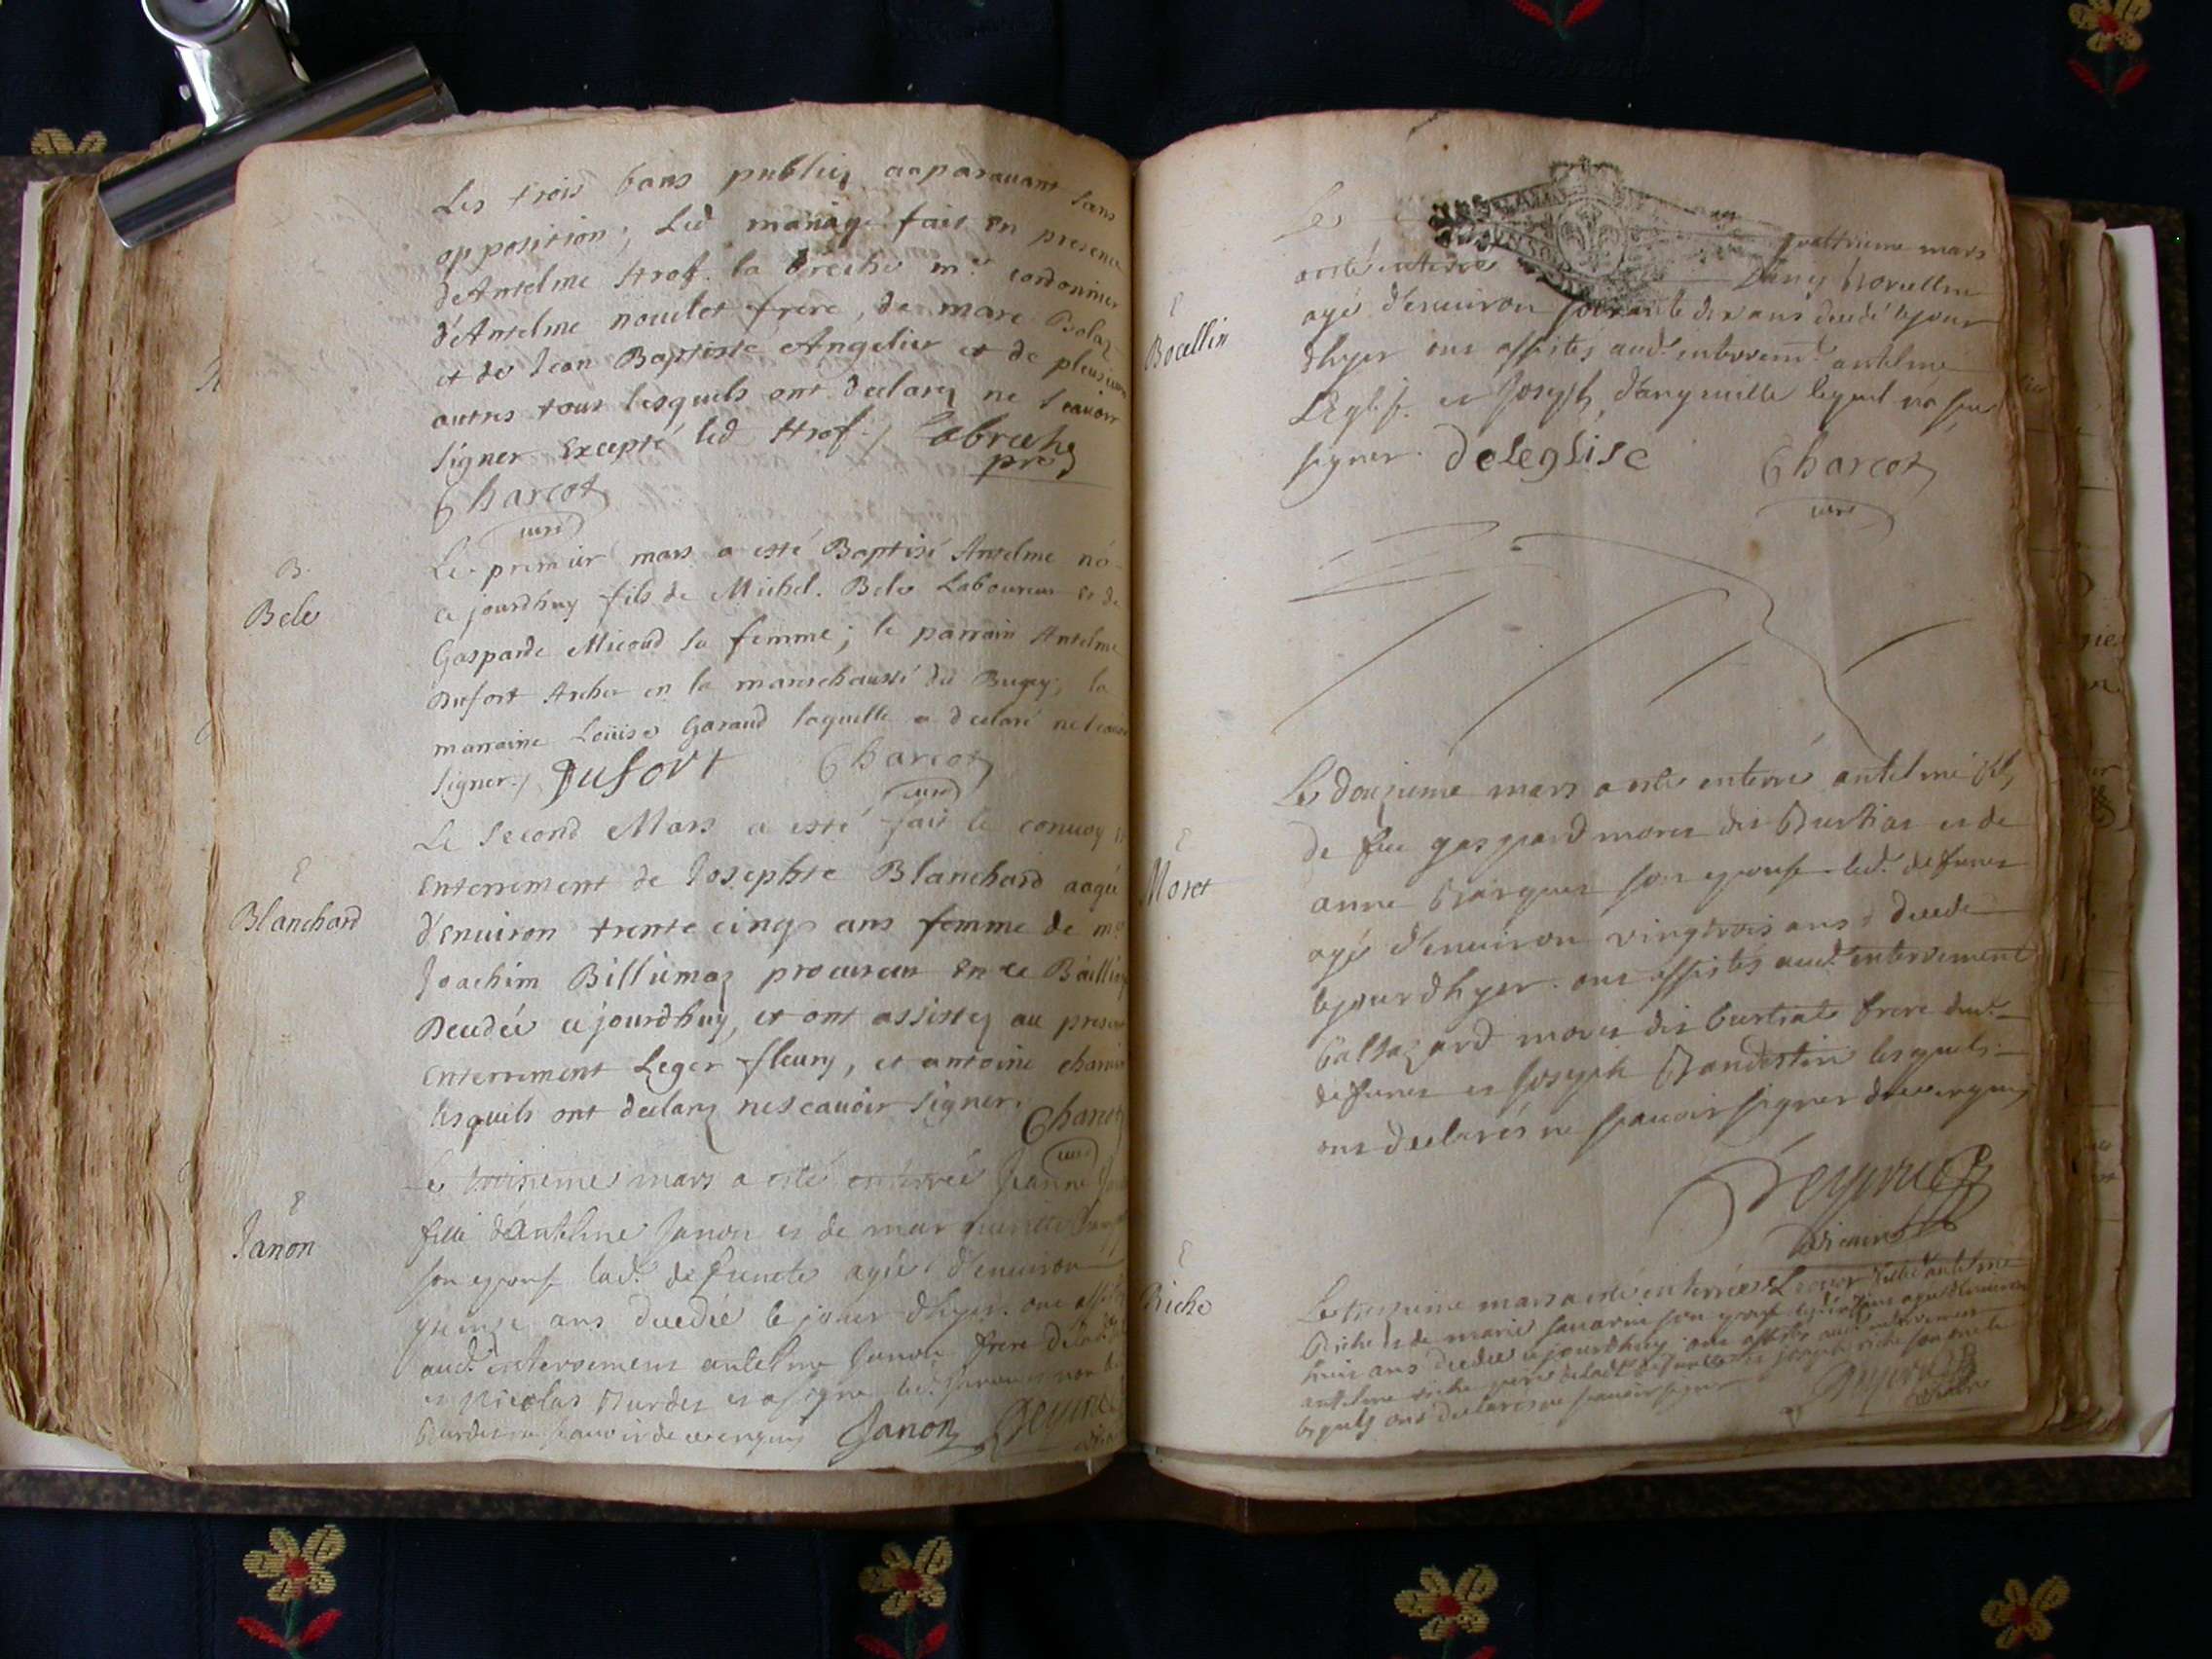 Les trois bans publiez auparavant sans
opposition; Led mariage fait en presence
de Antelme Strof. la breche me. cordonnier
d'Antelme nouvlet frere, de marc Bolaz
et de Jean Baptiste Angelier et de plusieurs
autres tous lesquels ont declaré ne scavoir
signer Excepté led Strof./. Labreche
pred
Charcot
curé
B.
Bele
Le premier mars a esté Baptisé Antelme né
ce jourdhuy fils de Michel. Bele Laboureur et de
Gasparde Micoud sa femme; le parrain Antelme
Dufort Archer en la marechaussé du Bugey, la
marraine Loüise Garaud laquelle a declaré ne scavoir
signer./. Dufort Charcot
curé
E
Blanchard
Le second Mars a esté fait le convoy et
Enterrement de Josephte Blanchard aagée
d'Environ trente cinq ans femme de me
Joachim Billiemaz procureur en ce Bailliage
Decedée ce jourdhuy, et ont assistez au present
Enterrement Leger fleury, et antoine
lesquels ont declarez ne scavoir signer. Charcot
curé
E
Janon
Le troisieme mars a esté enterrée Jeanne
fille d'Antelme Janon et de marguerite
son epouse lad. defuncte agée d'environ
quinze ans decedée le jour dhyer. ont assistez
aud. enterrement antelme Janon frere de lad.
et Nicolas Burdet et a signé led. Janon et non led.
Burdet ne scavoir de ce enquis Janon Peysson
E
Bocellin
Le quattrieme mars
a esté enterré Bocellin
agé d'environ soixante dix ans decedé le jour
dhyer ont assistés aud. enterremt. antelme
Leglise et Joseph danguille lequel n'a sceu
signer. deleglise Charcot
curé
E
Moret
Le douzieme mars a esté enterré antelme fils
de feu gaspard moret dit Burtiat et de
anne son epouse led. defunct
agé d'environ vingtrois ans decedé
le jour dhyer. ont assistés aud. enterrement
baltazard moret dit burtiat frere dud.
defunct et Joseph lesquels
ont declarés ne scavoir signer de ce enquis
vicaire
E
Riche
Le treizieme mars a esté enterrée fille d'antelme
Riche et de marie savarin son epouse agée d'environ
huit ans decedée ce jourdhuy ont assistés aud. enterrement
antelme riche pere de lad. defuncte et joseph riche son oncle
lesquels ont declarés ne scavoir signer